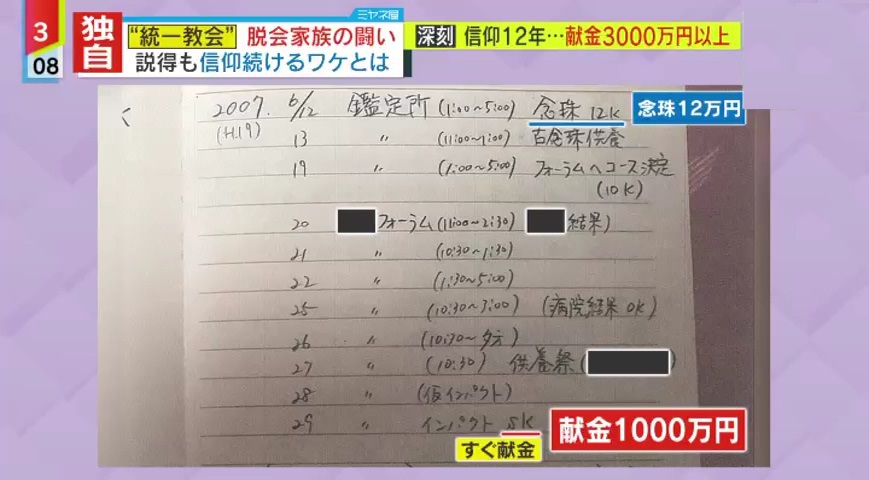 ミヤネ屋
3
08
独自
“統一教会” 脱会家族の闘い
説得も信仰続けるワケとは
深刻 信仰12年…献金3000万円以上
2007. 6/12 鑑定所 (1:00~5:00) 念珠 12K
念珠12万円
(H.19) 13 〃 (11:00~1:00) 古念珠供養
19 〃 (1:00~5:00) フォーラムへコース決定
(10K)
20 フォーラム (11:00~2:30) 結果)
21 〃 (10:30~1:30)
22 〃 (1:30~5:00)
25 〃 (10:30~3:00) (病院結果 OK)
26 〃 (10:30~夕方)
27 〃 (10:30) 供養祭 (
28 〃 (仮インパクト)
29 〃 インパクト 5K
すぐ献金
献金1000万円